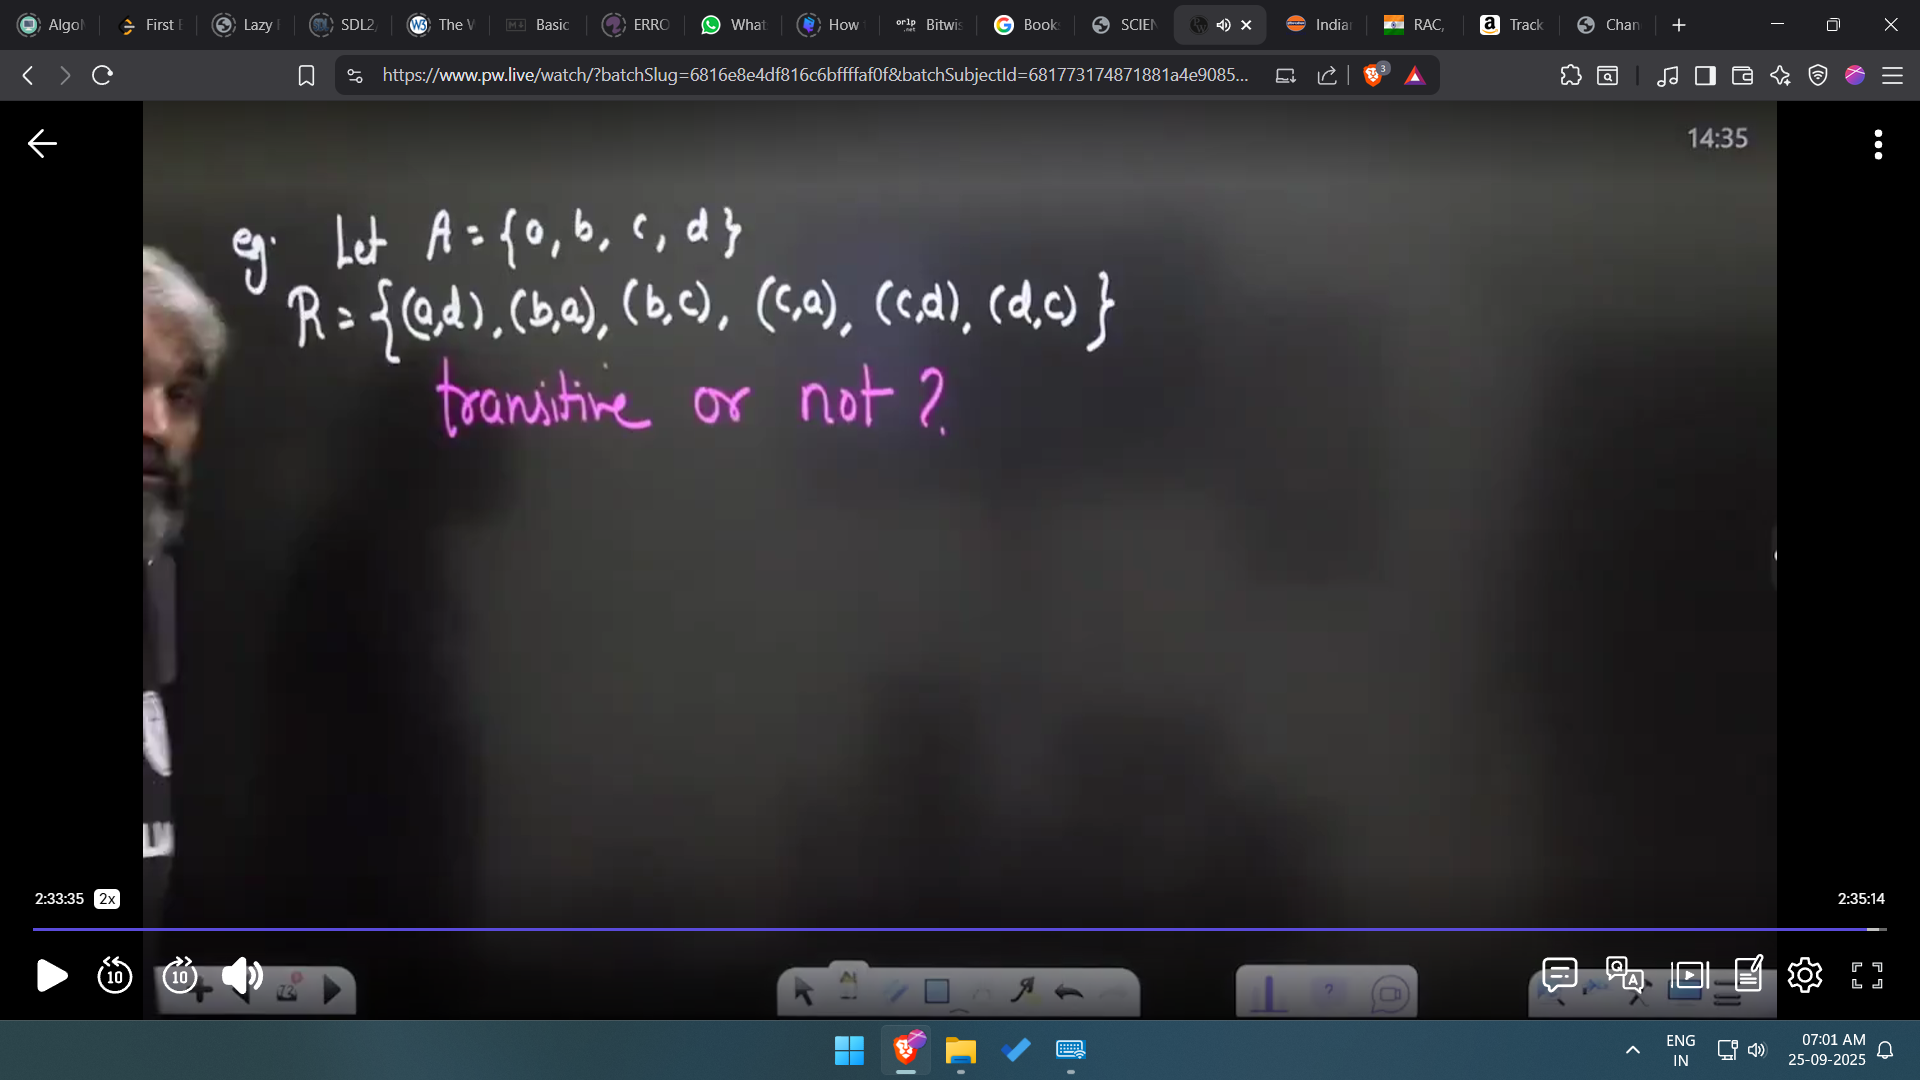 Algo
First E
Lazy
SDL2,
The V
Basic
ERRO
What
How
Bitwis
Book
SCIEN
India
RAC,
Track
Chan
https://www.pw.live/watch/?batchSlug=6816e8e4df816c6bffffaf0f&batchSubjectId=681773174871881a4e9085...
3
14:35
eg. Let A = {a, b, c, d}
R = {(a,d), (b,a), (b,c), (c,a), (c,d), (d,c)}
transitive or not?
2:33:35 2x
2:35:14
10 10
72
?
ENG
IN
07:01 AM
25-09-2025